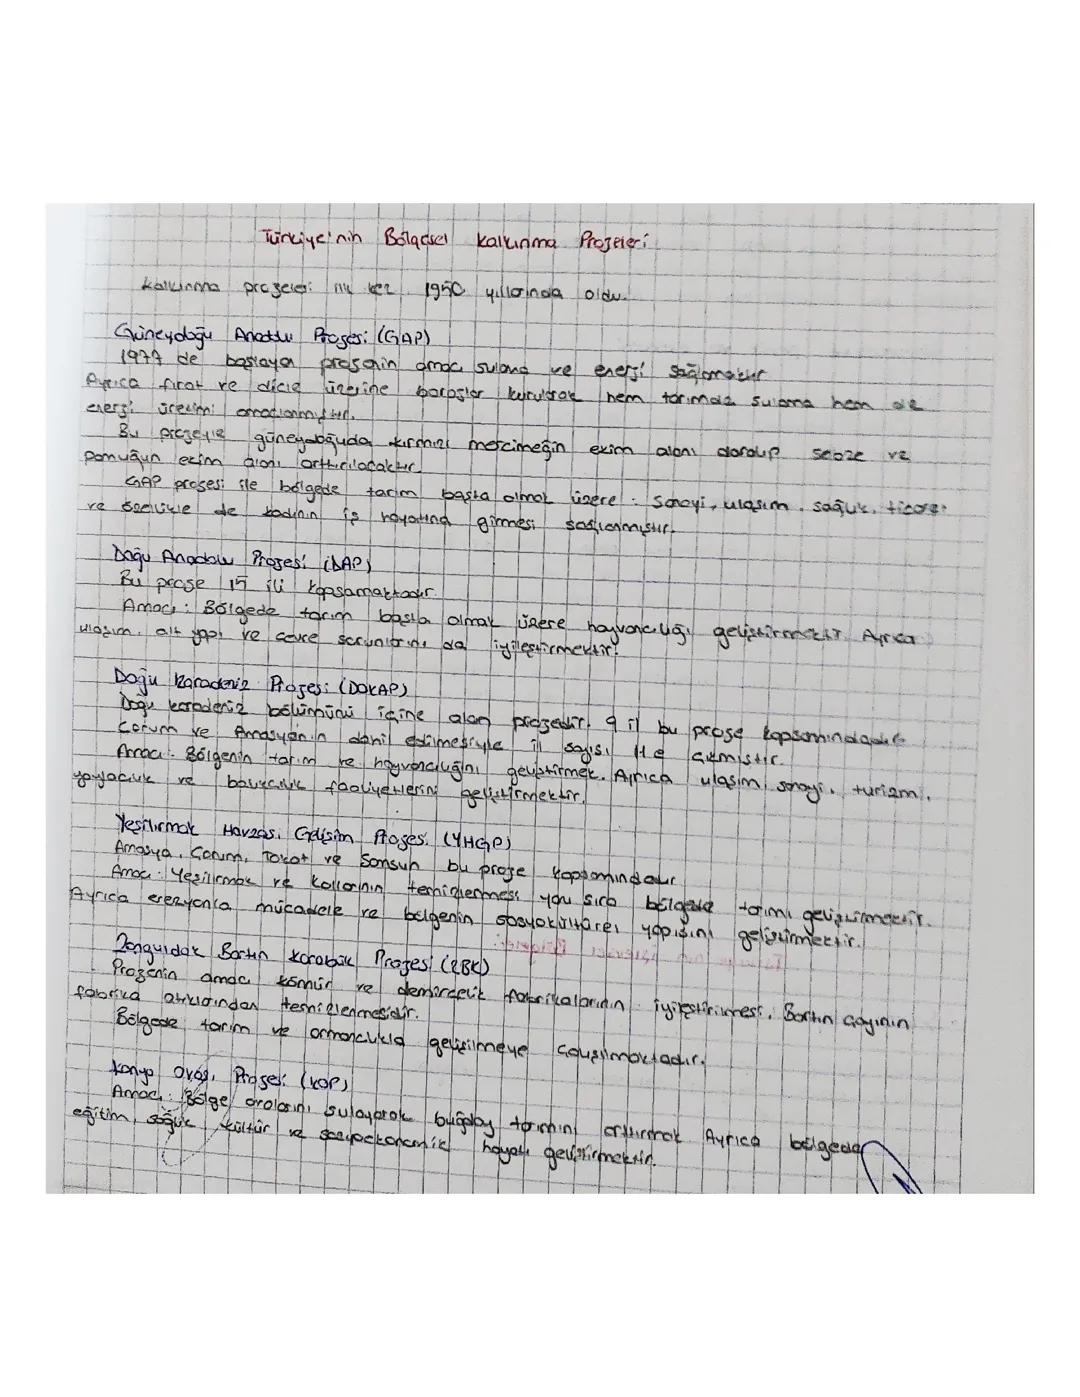 Türkiye'nin Bölgesel Kalkınma Projeleri
Kalkınma projeleri ilk kez 1950 yıllarında oldu.
Güneydoğu Anadolu Projesi (GAP)
1977 de başlayan projenin amacı sulama ve enerji sağlamaktır
Ayrıca fırat ve dicle üzerine barajlar kurularak hem tarımda sulama hem de
enerji üretimi amaçlanmıştır.
Bu projeyle güneydoğuda kırmızı mercimeğin ekim alanı daralıp sebze ve
pamuğun ekim alanı arttırılacaktır.
GAP projesi ile bölgede tarım başta olmak üzere: Sanayi, ulaşım, sağlık, ticaret
ve özellikle de kadının iş hayatına girmesi sağlanmıştır.
Doğu Anadolu Projesi (DAP)
Bu proje 15 ili kapsamaktadır.
Amacı: Bölgede tarım başta olmak üzere hayvancılığı geliştirmektir. Ayrıca
ulaşım, alt yapı ve çevre sorunlarını da iyileştirmektir.
Doğu Karadeniz Projesi (DOKAP)
Doğu karadeniz bölümünü içine alan projedir. 9 il bu proje kapsamındadır.
Çorum ve Amasya'nın dahil edilmesiyle il sayısı 11 e çıkmıştır.
Amacı: Bölgenin tarım ve hayvancılığını geliştirmek. Ayrıca ulaşım, sanayi, turizm,
yaylacılık ve balıkçılık faaliyetlerini geliştirmektir.
Yeşilırmak Havzası Gelişim Projesi (YHGP)
Amasya, Çorum, Tokat ve Samsun bu proje kapsamındadır
Amacı: Yeşilırmak ve kollarının temizlenmesi yanı sıra bölgede tarımı geliştirmektir.
Ayrıca erezyonla mücadele ve bölgenin sosyokültürel yapısını geliştirmektir.
Zonguldak Bartın Karabük Projesi (ZBK)
Projenin amacı kömür ve demirçelik fabrikalarının iyileştirilmesi, Bartın çayının
fabrika atıklarından temizlenmesidir.
Bölgede tarım ve ormancılıkla gelişilmeye çalışılmaktadır.
Konya Ovası Projesi (KOP)
Amacı: Bölge ovalarını sulayarak buğday tarımını arttırmak Ayrıca bölgede
eğitim, sağlık kültür ve sosyoekonomik hayatı geliştirmektir.